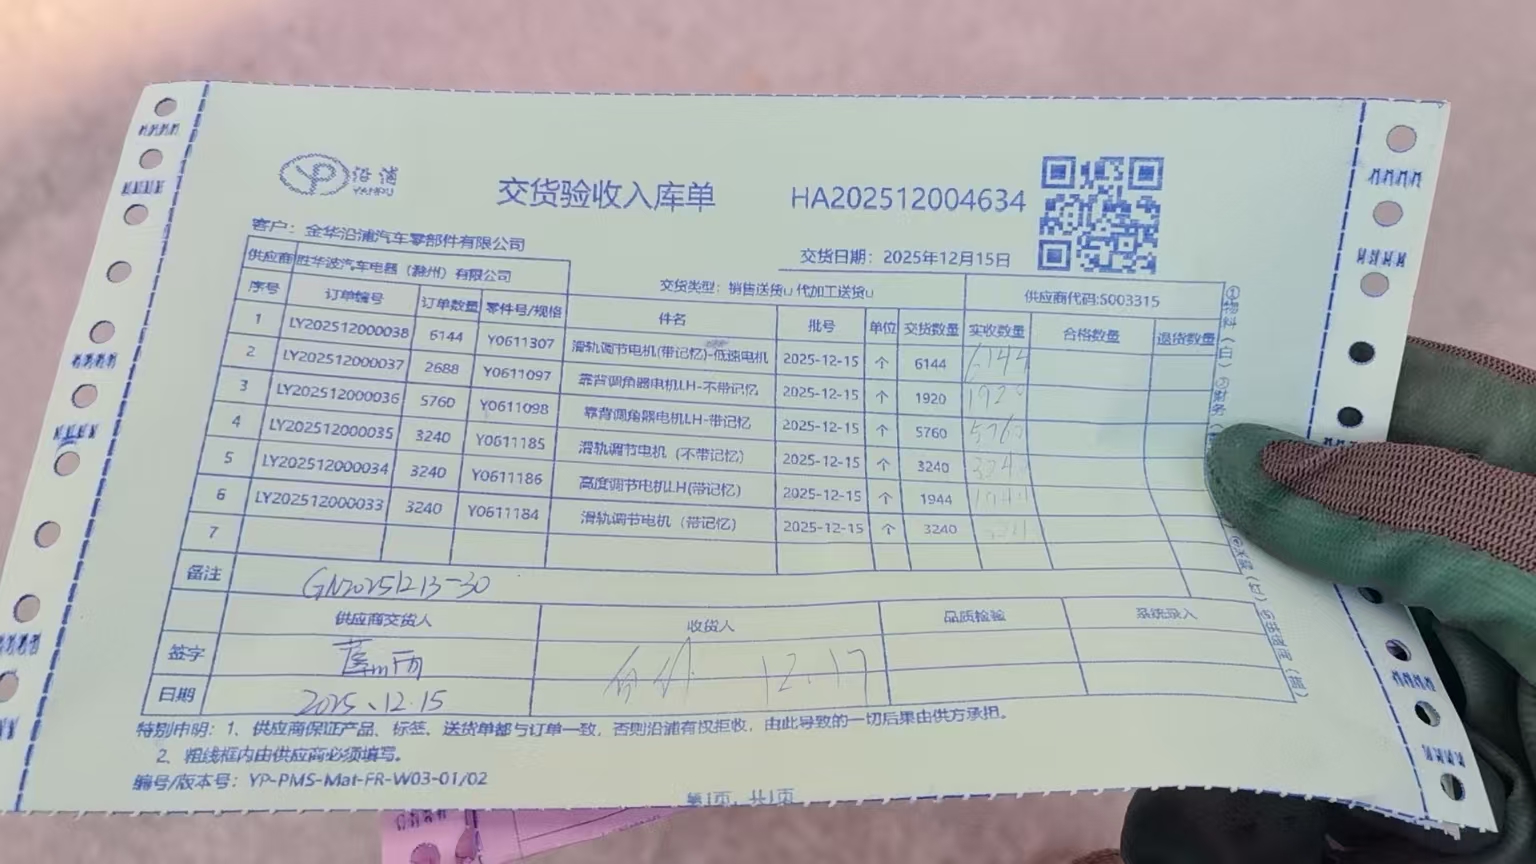 沿浦
YANPU
交货验收入库单
HA202512004634
客户：金华沿浦汽车零部件有限公司
交货日期：2025年12月15日
供应商 胜华波汽车电器（滁州）有限公司
交货类型：销售送货 代加工送货
供应商代码:S003315
序号 订单编号 订单数量 零件号/规格 件名 批号 单位 交货数量 实收数量 合格数量 退货数量
1 LY202512000038 6144 Y0611307 滑轨调节电机(带记忆)-低速电机 2025-12-15 个 6144 6144
2 LY202512000037 2688 Y0611097 靠背调角器电机LH-不带记忆 2025-12-15 个 1920 1920
3 LY202512000036 5760 Y0611098 靠背调角器电机LH-带记忆 2025-12-15 个 5760 5760
4 LY202512000035 3240 Y0611185 滑轨调节电机（不带记忆） 2025-12-15 个 3240 3240
5 LY202512000034 3240 Y0611186 高度调节电机LH(带记忆) 2025-12-15 个 1944 1944
6 LY202512000033 3240 Y0611184 滑轨调节电机（带记忆） 2025-12-15 个 3240
7
备注 GN20251213-30
供应商交货人 收货人 品质检验 系统录入
签字
12.17
日期 2025.12.15
特别申明：1、供应商保证产品、标签、送货单都与订单一致，否则沿浦有权拒收，由此导致的一切后果由供方承担。
2、粗线框内由供应商必须填写。
编号/版本号：YP-PMS-Mat-FR-W03-01/02
第1页，共1页
①物料（白）②财务